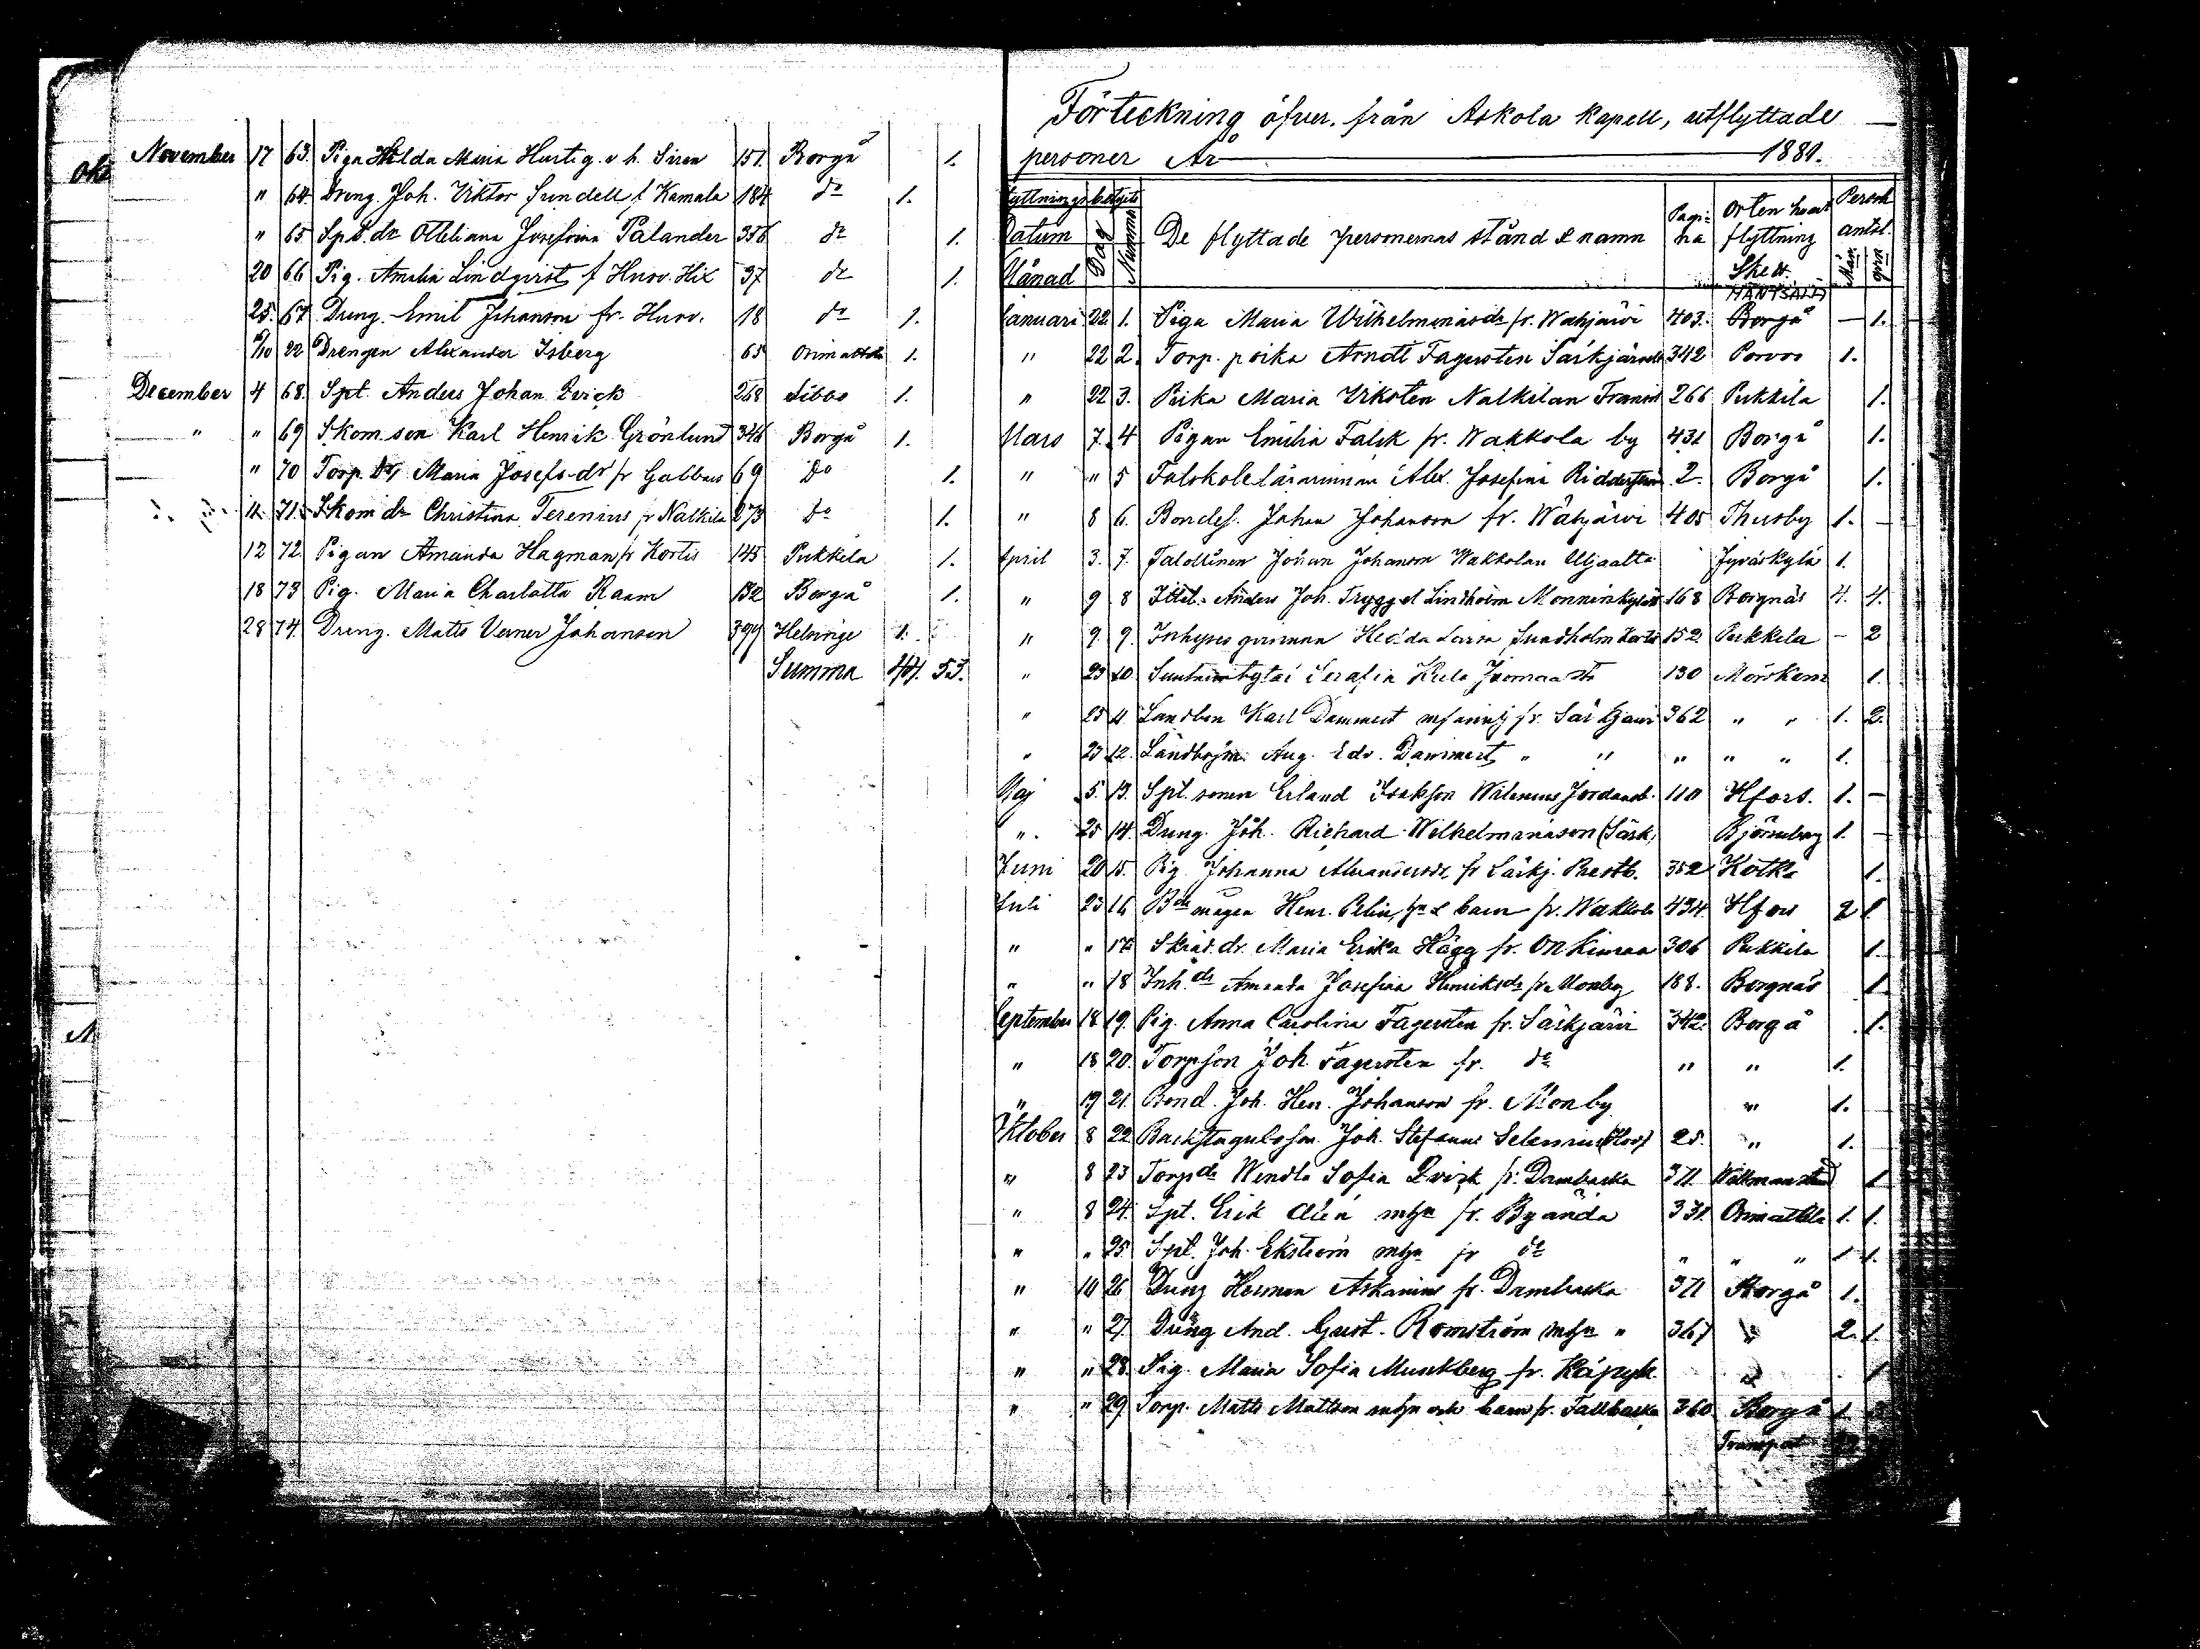 November 17 63. Piga Hilda Maria Hurtig. v h. Siren 151. Borgå 1.
" 64. Dreng. Joh. Viktor Sundell f Kamala 184 do 1.
" 65 Spt. dr Otteliana Josefina Palander 356 do 1.
20 66 Pig. Amalia Lindqvist f Huso. Hix 37 do 1.
25. 67. Dreng. Emil Johanson fr. Huso. 18 do 1.
22 Drengen Alexander Isberg 65 Orimattila 1.
December 4 68. Spt. Anders Johan Qvick 268 Sibbo 1.
" " 69 Skom. son Karl Henrik Grönlund 346 Borgå 1.
" 70 Torp. dr, Maria Josefs-dr fr Gabbas 69 do 1.
11. 71. Skom dr Christina Terenius fr Nalkila 273 do 1.
12 72. Pigan Amanda Hagman fr Kortis 145 Pukkila 1.
18 73 Pig. Maria Charlotta Raam 132 Borgå 1.
28 74. Dreng. Matts Verner Johanson 399 Helsinge 1.
Summa 44. 53.
Förteckning öfver, från Askola Kapell, utflyttade
personer År 1881.
Flyttnings betygets
Datum Dag Nummer De flyttade personernas stånd & namn Pagina Orten hvart flyttning Skett. Person antal.
Månad Mån Qvin
HÄNTSÄLÄ
Januari 22. 1. Piga Maria Wilhelminasdr fr. Wahjärvi 403. Borgå — 1.
" 22 2. Torp. poika Arndt Fagersten Särkjärvelt 342 Porvoo 1.
" 22 3. Piika Maria Viksten Nalkilan 266 Pukkila 1.
Mars 7. 4 Pigan Emilia Falck fr. Wakkola by 431 Borgå 1.
" " 5 Folkskolelärarinnan Alex. Josefina 2. Borgå 1.
" 8 6. Bondes. Johan Johanson fr. Wahjärvi 405 Thusby 1. —
April 3. 7. Talollinen Johan Johanson Wakkolan Uljaalta Jyväskylä 1.
" 9 8 Anders Joh. Trygg Lindholm Monninkylä 168 Borgnäs 4. 4.
" 9. 9. Inhyses qvinnan Hedda Lovisa Sundholm 152 Pukkila — 2
" 23 10. Serafia 130 Mörskom 1.
" 25 11. Landbon Karl Dammert m familj fr. Särkjärvi 362 " " 1. 2.
" 23 12. Landbos Aug. Edv. Dammert " " " " " 1.
Maj 5. 13. Spt. sonen Erland Isakson Walenius 110 Hfors. 1. —
". 25 14. Dreng. Joh. Richard Wilhelminason (Särk) Björneborg 1. —
Juni 20 15. Pig. Johanna Alexandersdr fr Särkj. 352 Kotka 1.
Juli 23 16 Bde magen Henr. Pelin, hu & barn fr. Wakkola 434. Hfors 2 1
" " 17. Skräd. dr. Maria Erika Hägg fr. Onkimaa 306 Pukkila 1.
" " 18 Inh. dr Amanda Josefina Henriksdr fr Monby 188. Borgnäs 1
September 18 19. Pig. Anna Carolina Fagersten fr. Särkjärvi 342. Borgå 1.
" 18 20. Torpson Joh. Fagersten fr. do " " 1.
" 19 21. Bond. Joh. Hen. Johanson fr. Monby " 1.
Oktober 8 22. Joh. Stefanus Selenius (Huso) 25. " 1.
" 8 23 Torp dr Wendla Sofia Qvick fr. Dambacka 371. Walkman 1
" 8 24. Spt. Erik Alén mhu fr. Byända 331. Orimattila 1. 1.
" " 25. Spt. Joh. Ekström mhu fr do " " " 1 1.
" 10 26 Dreng Herman Askanius fr. Dambacka 371 Borgå 1.
" " 27. Dreng And. Gust. Romström mhu " 367 " 2. 1.
" " 28. Pig. Maria Sofia Munkberg fr. 1
" " 29 Torp. Matts Mattson mhu och barn fr. Tallbacka 360 Borgå 1
Transport